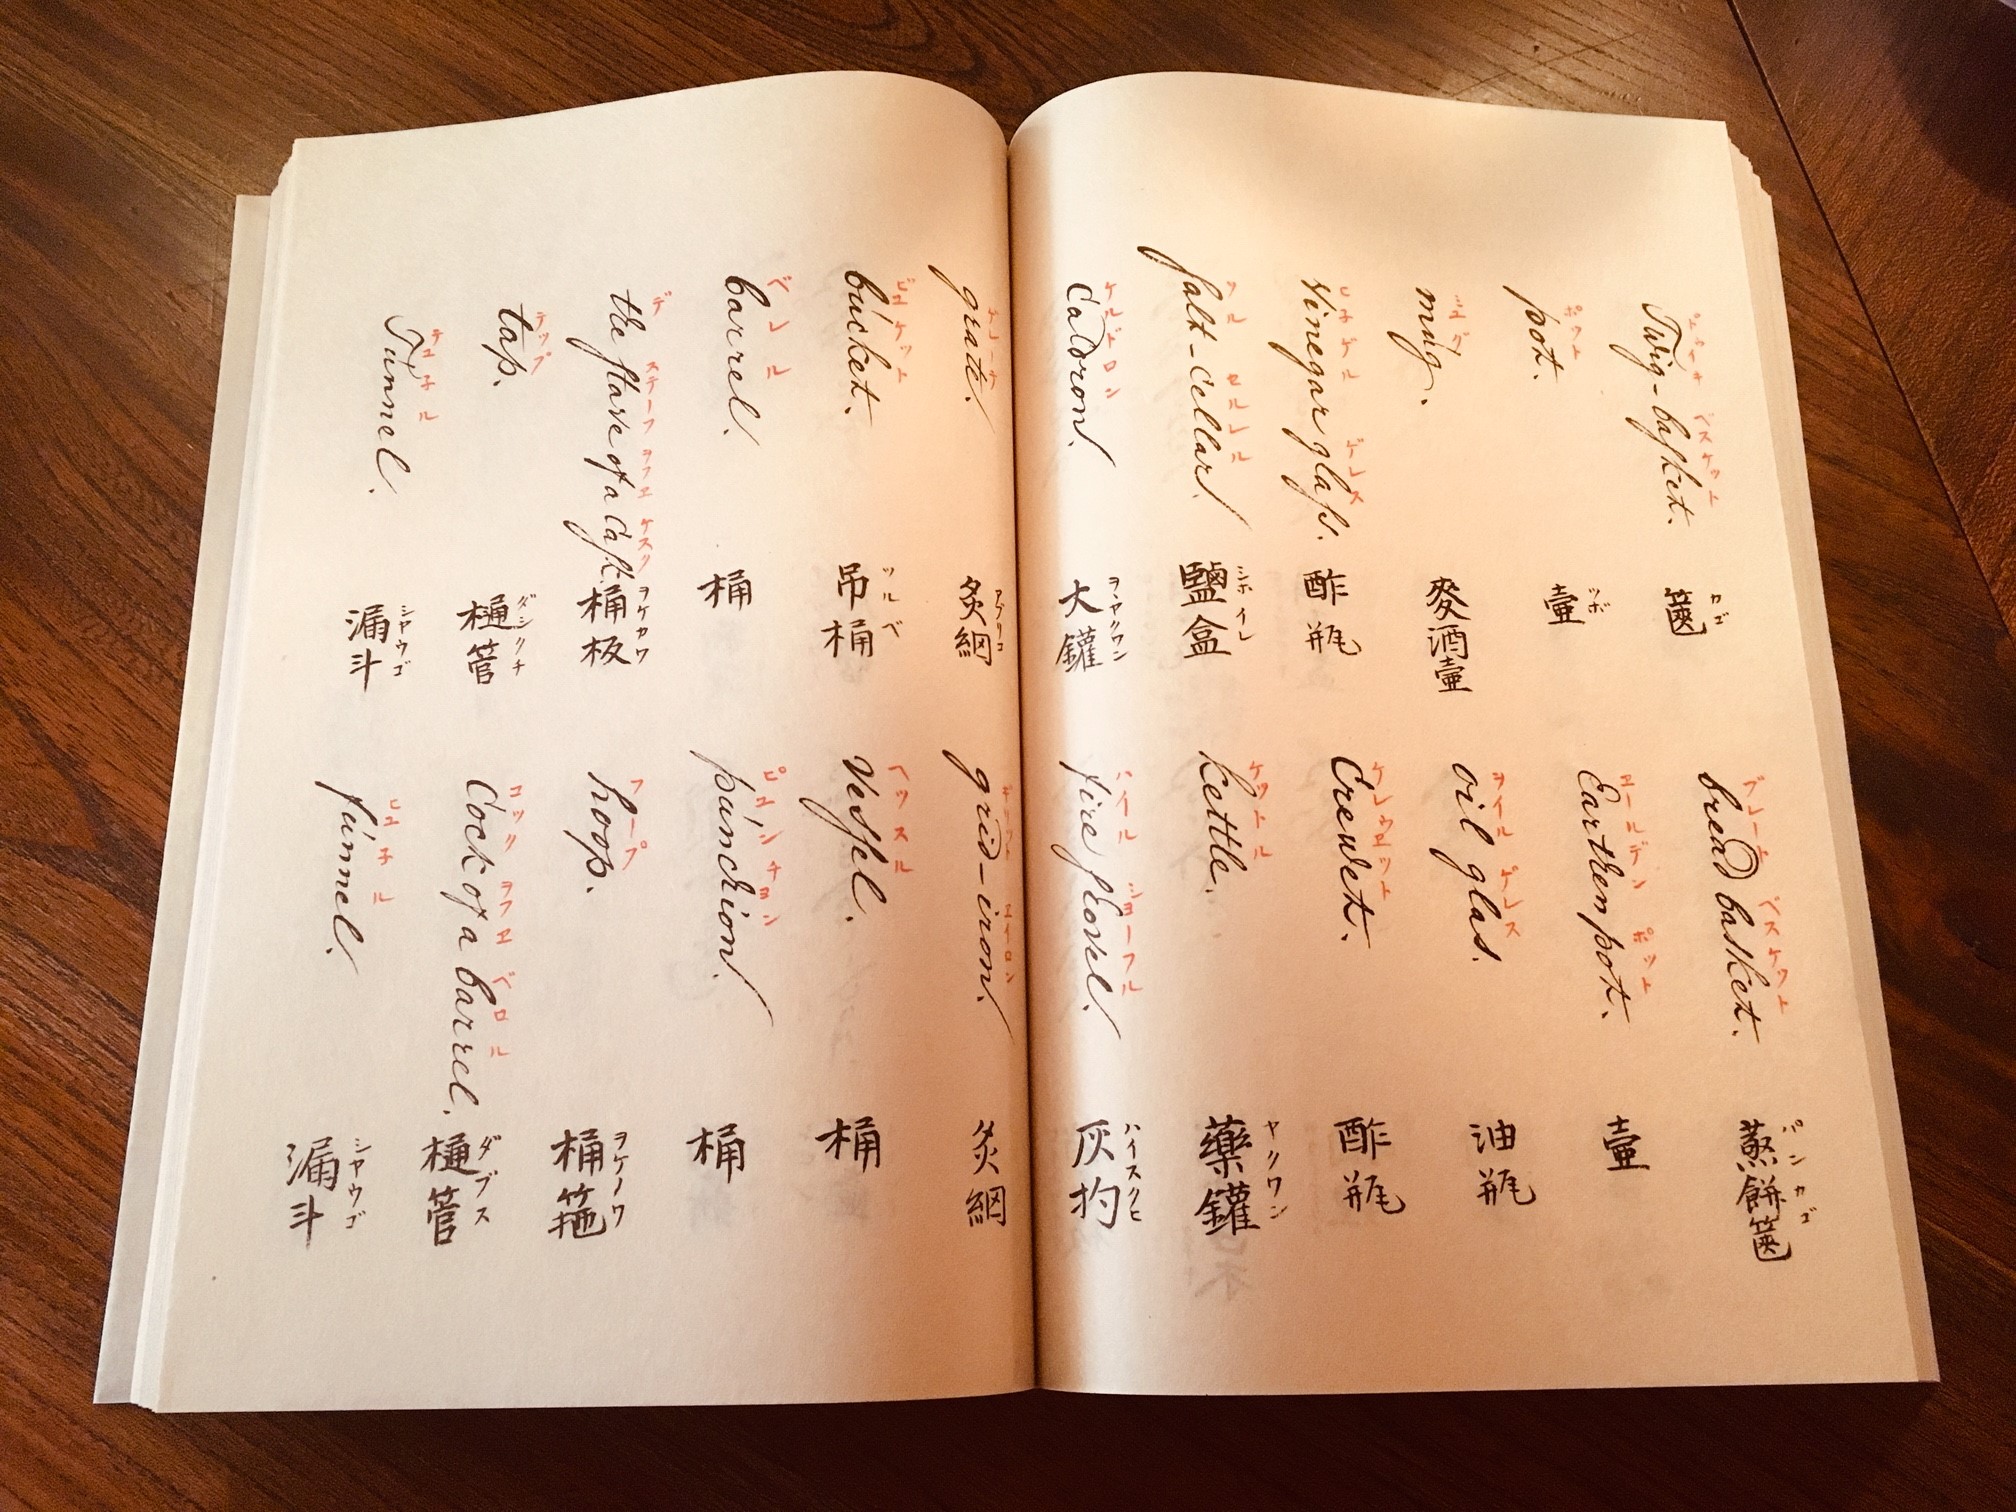 ベスケット カゴ ブレート ベスケット パンカゴ
Twig-baſket. 篋 bread basket. 蒸餅篋
ポット ツボ エールデン ポット
pot. 壷 Earthen pot. 壷
ミュグ ヲイル ゲレス
mug. 麥酒壷 oil glas. 油瓶
ヒネゲル ゲレス ケレウエット
Vinegar glaſs. 酢瓶 Crewet. 酢瓶
セルレル シホイレ ケットル ヤクワン
ſalt-Cellar. 鹽盒 kettle. 藥鑵
ケルドロン ヲヽヤクワン ハイル ショーフル ハイスクヒ
Caldron. 大鑵 fire ſhovel. 灰杓
アブリコ エイロン
grate. 炙網 grid-iron. 炙網
ビュケット ツルベ ヘッスル
búcket. 吊桶 Veſſel. 桶
ベレル ピュンチョン
barrel. 桶 púnchion. 桶
デ ステーフ ヲフ エ ケスク ヲケカワ フープ ヲケノワ
the ſtave of a Caſk. 桶板 hoop. 桶箍
テップ ダシクチ コック ヲフ エ ベロル ダブス
tap. 樋管 Cock of a barrel. 樋管
テュネル シヤウゴ ヒュネル シヤウゴ
Túnnel. 漏斗 fúnnel. 漏斗